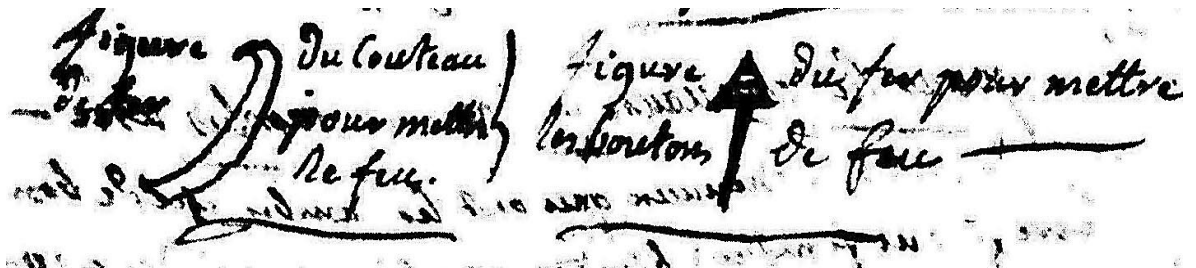 figure du Couteau
de fer pour mettre
le feu.
figure du fer pour mettre
les boutons de feu